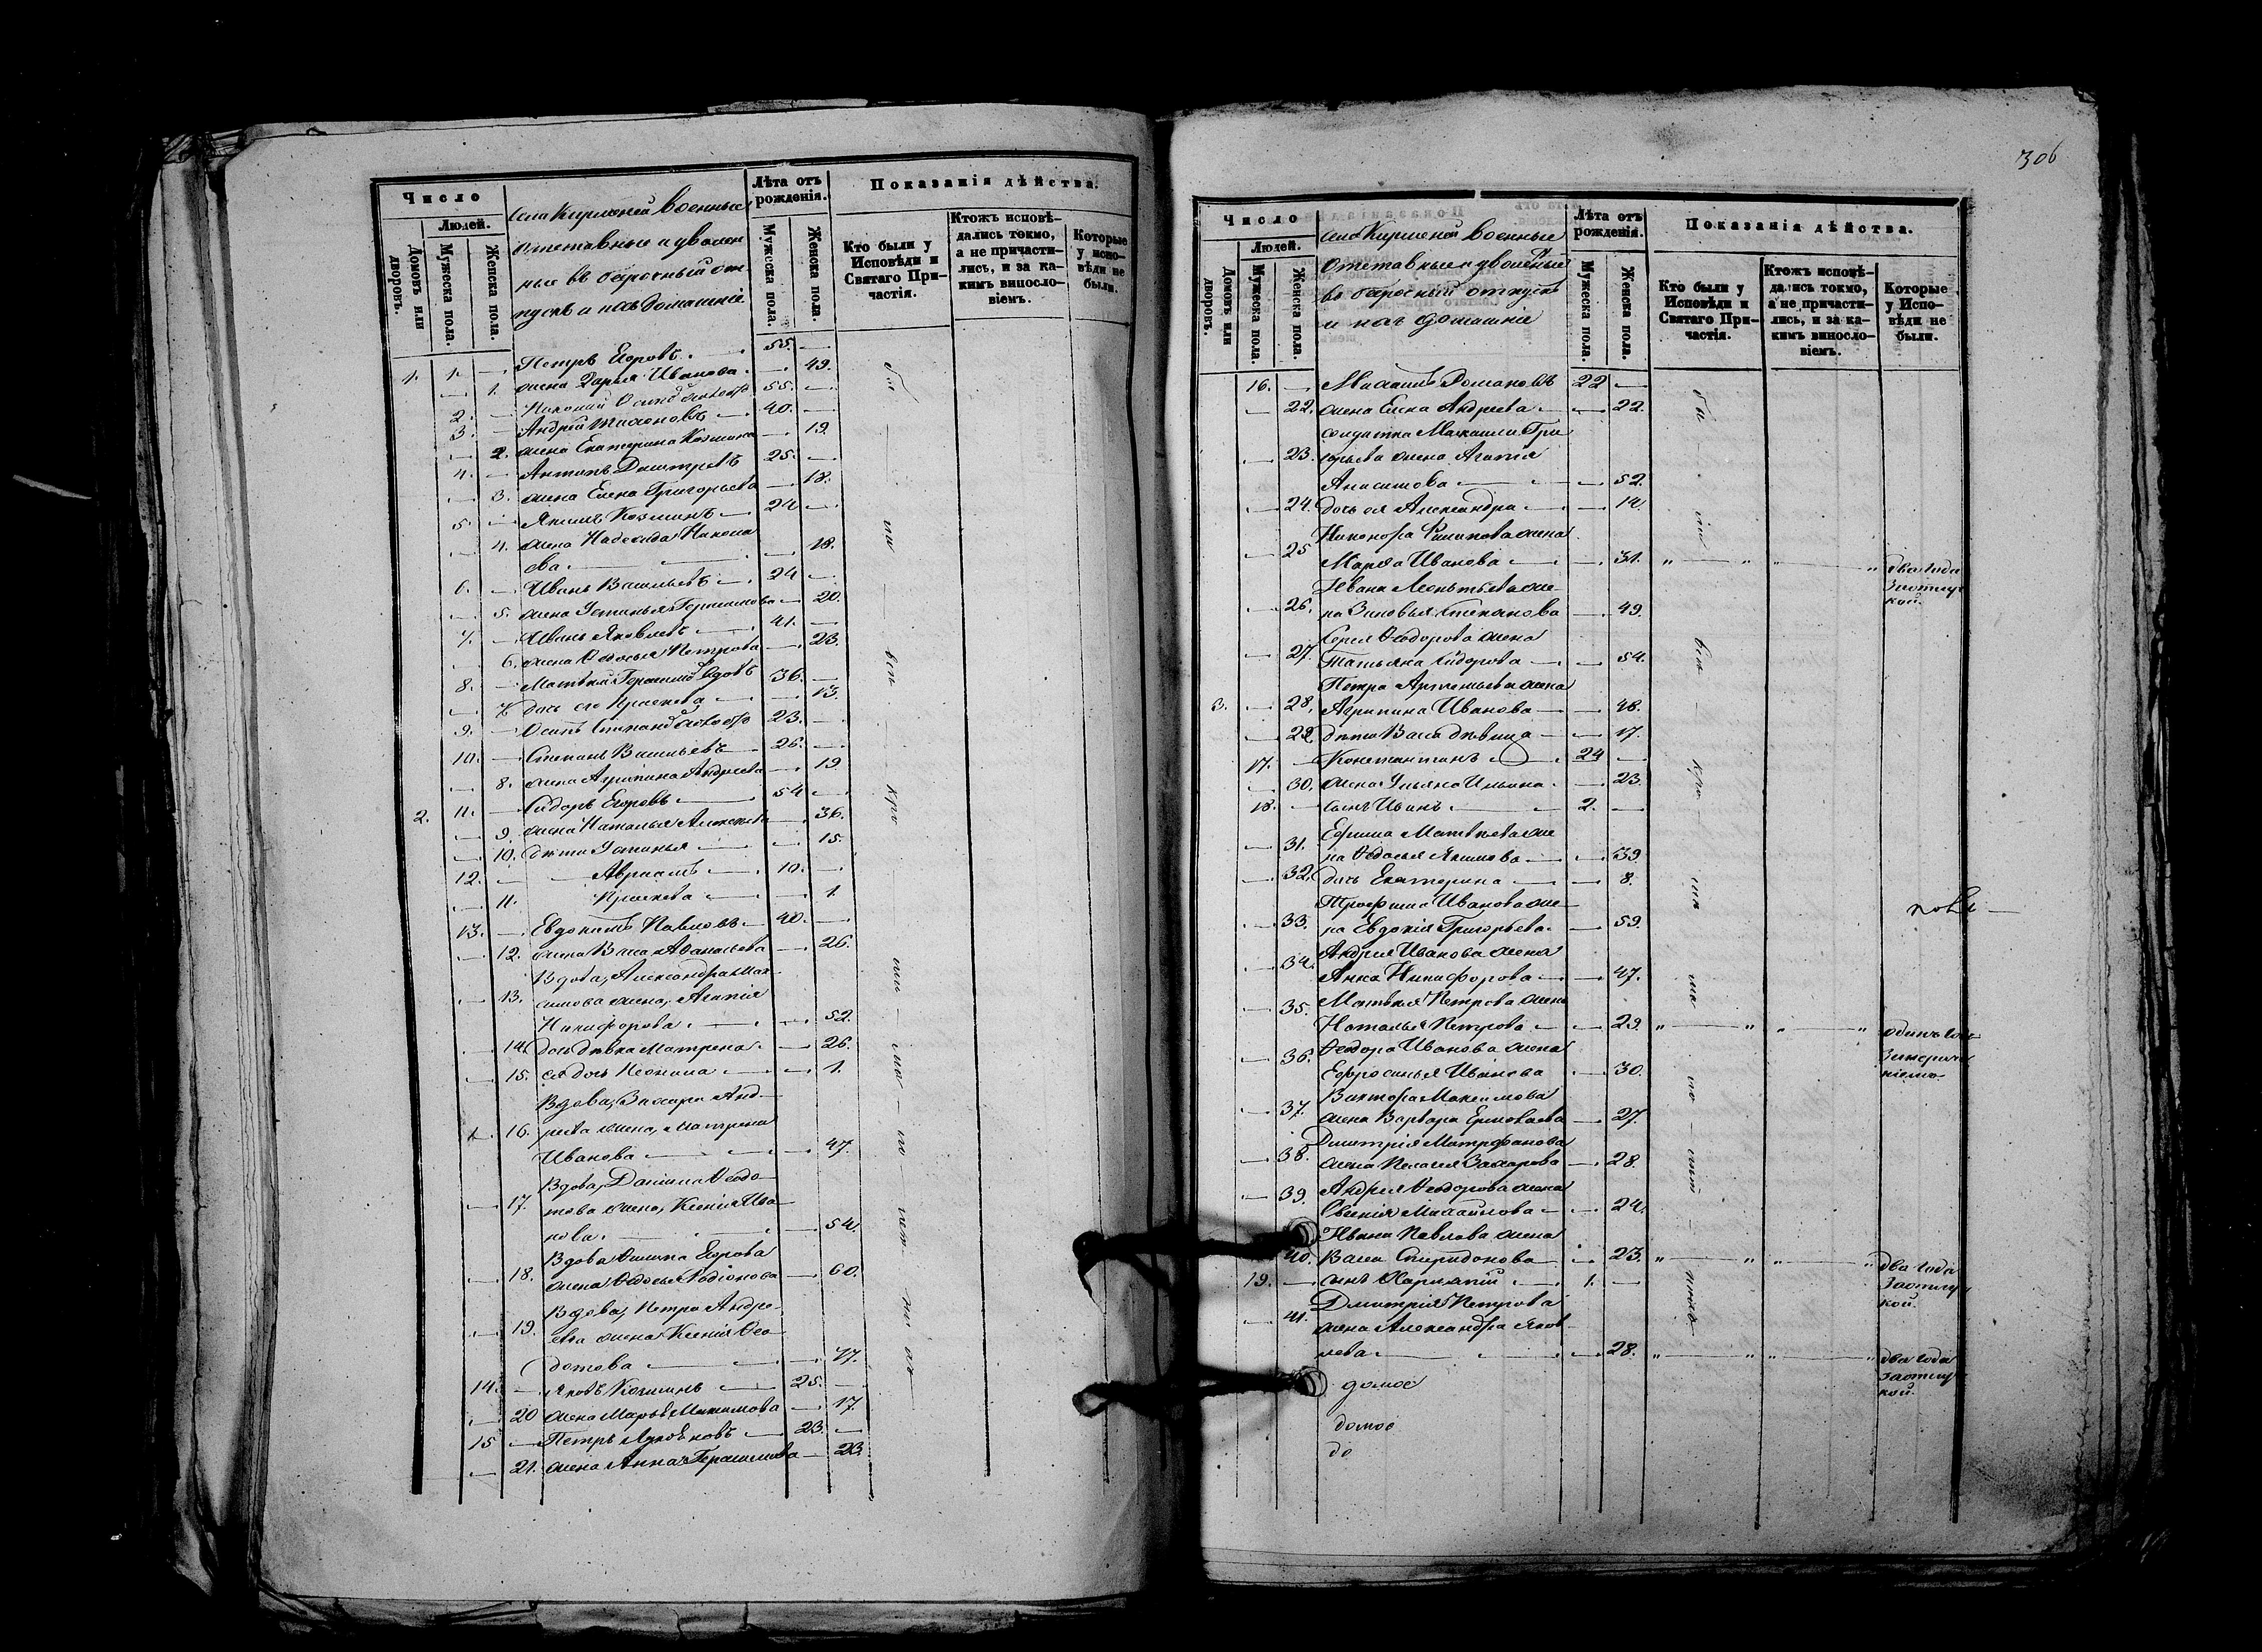 306
Число
Людей.
Домовъ или дворовъ.
Мужеска пола.
Женска пола.
села военные
отставные и уволен
ные въ безсрочный от
пускъ и ихъ домашніе
Лѣта отъ рожденія.
Мужеска пола.
Женска пола.
Показанія дѣйства.
Кто были у Исповѣди и Святаго Причастія.
Ктожъ исповѣдались токмо, а не причастились, и за какимъ винословіемъ.
Которые у исповѣди не были.
1. 1. — Петръ Егоровъ 55. —
— 1. жена Дарья Иванова — 49.
2. — 55. —
3. — Андрей 40. —
— 2. жена Екатерина Козмина — 19.
4. — Антонъ Дмитревъ 25. —
— 3. жена Елена Григорьева — 18.
5. — Якимъ Козминъ 24 —
— 4. жена Надежда Никола
ева — 18.
6. — Иванъ Васильевъ 24 —
— 5. жена Устинья Герасимова — 20.
7. — Иванъ Яковлевъ 41. —
— 6. жена Ѳедосья Петрова — 23.
8. — Матвѣй вдовъ 36. —
— 7. дочь его Прасковья — 13.
9. — Осипъ 23. —
10. — Степанъ Васильевъ 26. —
— 8. жена Агрипина Андреева — 19
2. 11. — Сидоръ Егоровъ 54 —
— 9. жена Наталья Алексѣева — 36.
— 10. дѣти Устинья — 15.
12. — Авраамъ 10. —
— 11. — 1.
13. — Евдокимъ Павловъ 40. —
— 12. жена Васса Аѳанасьева — 26.
Вдова, Александра Мак
— 13. симова жена, Агапія
Никифорова — 52.
— 14. дочь дѣвка Матрена — 26.
— 15. ея дочь — 1.
Вдова, Захара Анд
— 16. реева жена, Матрена
Иванова — 47.
Вдова, Даніила Ѳедо
— 17. това жена, Ксенія Ива
нова — 54.
Вдова Егорова
— 18. жена Ѳедосья Родіонова — 60.
Вдова, Петра Андре
— 19. ева жена Ксенія Ѳео
дотова — 47.
14. — Яковъ Козминъ 25. —
— 20 жена Марья — 17.
15 — Петръ 23. —
— 21. жена Анна Герасимова — 23
Число
Людей.
Домовъ или дворовъ.
Мужеска пола.
Женска пола.
села военные
отставные и уволенные
въ безсрочный отпускъ
и ихъ домашніе
Лѣта отъ рожденія.
Мужеска пола.
Женска пола.
Показанія дѣйства.
Кто были у Исповѣди и Святаго Причастія.
Ктожъ исповѣдались токмо, а не причастились, и за какимъ винословіемъ.
Которые у Исповѣди не были.
16. — Романовъ 22 —
— 22. жена Елена Андреева — 22.
солдатка Михаила Гри
— 23. горьева жена Агапія
Анисимова — 52.
— 24. дочь ея Александра — 14.
Никонора Филипова жена
— 25 Марѳа Иванова — 31. два года за отлучкой.
Ивана Леонтьева же
— 26. на Зиновья Степанова — 49.
Сергея Ѳедорова жена
— 27. Татьяна Сидорова — 54.
Петра Артемьева жена
3. — 28. Агрипина Иванова — 48.
— 29. дѣти Васса дѣвица — 17.
17. — Константинъ 24 —
— 30. жена Ульяна Ильина — 23.
18. — сынъ Иванъ 2. —
Ефима Матвѣева же
— 31. на Ѳедосья Якимова — 39.
— 32. дочь Екатерина — 8.
Трофима Иванова же
— 33. на Евдокія Григорьева — 59.
Андрея Иванова жена
— 34. Анна Никифорова — 47.
Матвѣя Петрова жена
— 35. Наталья Петрова — 29. одинъ годъ
Ѳедора Иванова жена
— 36. Ефросинья Иванова — 30.
Виктора Максимова
— 37. жена Варвара Ермолаева — 27.
Дмитрія Митрофанова
— 38. жена Пелагея Захарова — 28.
Андрея Ѳедорова жена
— 39. Евгенія Михайлова — 24.
Ивана Павлова жена
— 40. Васса Спиридонова — 23. два года за отлучкой.
19. — сынъ Харлампій 1. —
Дмитрія Петрова
— 41. жена Александра Яков
лева — 28. два года за отлучкой.
домов
домов
до